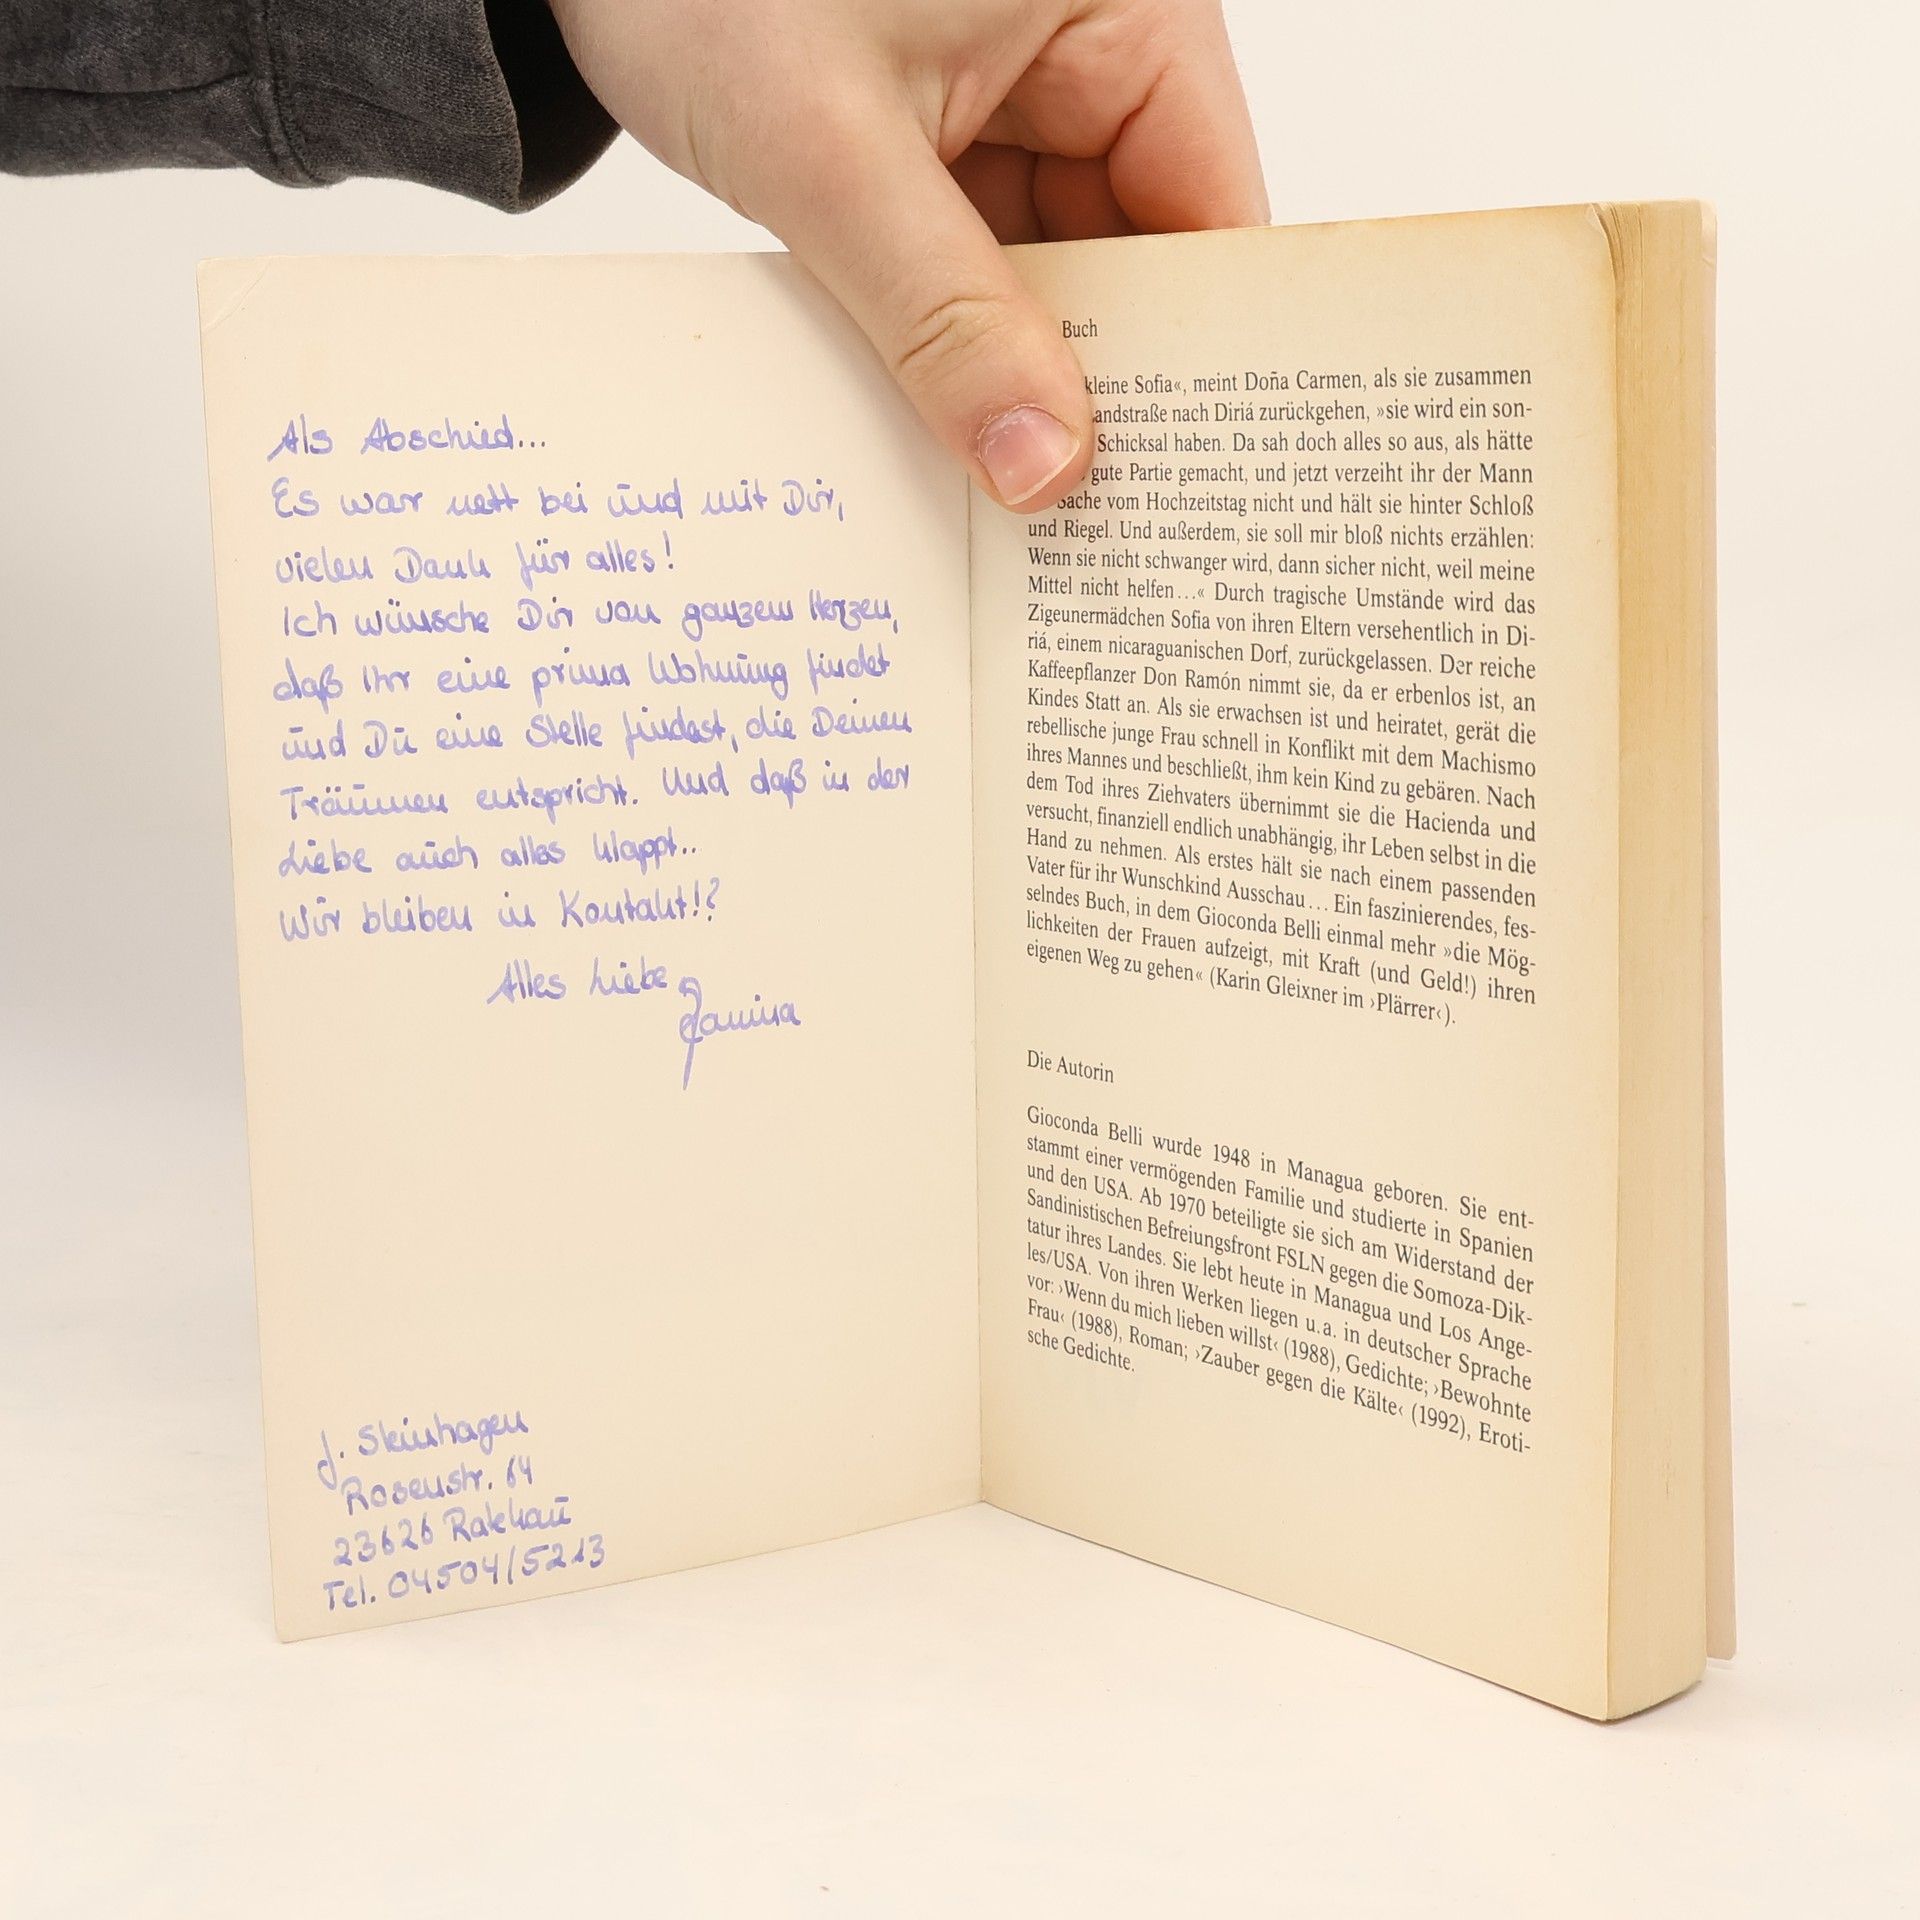 Als Abschied...
Es war nett bei und mit Dir,
vielen Dank für alles!
Ich wünsche Dir von ganzem Herzen,
daß Ihr eine prima Wohnung findet
und Du eine Stelle findest, die Deinen
Träumen entspricht. Und daß in der
Liebe auch alles klappt..
Wir bleiben in Kontakt!?
Alles Liebe
Janina
J. Steinhagen
Rosenstr. 64
23626 Ratekau
Tel. 04504/5213
Buch
kleine Sofia«, meint Doña Carmen, als sie zusammen
Landstraße nach Diriá zurückgehen, »sie wird ein son-
Schicksal haben. Da sah doch alles so aus, als hätte
gute Partie gemacht, und jetzt verzeiht ihr der Mann
Sache vom Hochzeitstag nicht und hält sie hinter Schloß
und Riegel. Und außerdem, sie soll mir bloß nichts erzählen:
Wenn sie nicht schwanger wird, dann sicher nicht, weil meine
Mittel nicht helfen...« Durch tragische Umstände wird das
Zigeunermädchen Sofia von ihren Eltern versehentlich in Di-
riá, einem nicaraguanischen Dorf, zurückgelassen. Der reiche
Kaffeepflanzer Don Ramón nimmt sie, da er erbenlos ist, an
Kindes Statt an. Als sie erwachsen ist und heiratet, gerät die
rebellische junge Frau schnell in Konflikt mit dem Machismo
ihres Mannes und beschließt, ihm kein Kind zu gebären. Nach
dem Tod ihres Ziehvaters übernimmt sie die Hacienda und
versucht, finanziell endlich unabhängig, ihr Leben selbst in die
Hand zu nehmen. Als erstes hält sie nach einem passenden
Vater für ihr Wunschkind Ausschau... Ein faszinierendes, fes-
selndes Buch, in dem Gioconda Belli einmal mehr »die Mög-
lichkeiten der Frauen aufzeigt, mit Kraft (und Geld!) ihren
eigenen Weg zu gehen« (Karin Gleixner im ›Plärrer‹).
Die Autorin
Gioconda Belli wurde 1948 in Managua geboren. Sie ent-
stammt einer vermögenden Familie und studierte in Spanien
und den USA. Ab 1970 beteiligte sie sich am Widerstand der
Sandinistischen Befreiungsfront FSLN gegen die Somoza-Dik-
tatur ihres Landes. Sie lebt heute in Managua und Los Ange-
les/USA. Von ihren Werken liegen u.a. in deutscher Sprache
vor: ›Wenn du mich lieben willst‹ (1988), Gedichte; ›Bewohnte
Frau‹ (1988), Roman; ›Zauber gegen die Kälte‹ (1992), Eroti-
sche Gedichte.